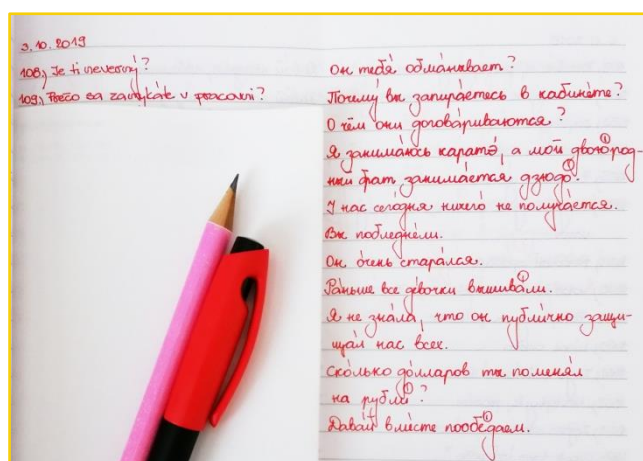 3.10.2019
108.) Je ti neverný?
109.) Prečo sa zamykáte v pracovni?
Он тебя́ обма́нывает?
Почему́ вы запира́етесь в кабине́те?
О чём они догова́риваются?
Я занима́юсь каратэ́, а мой двою́род-
ный брат занима́ется дзюдо́.
У нас сего́дня ничего́ не получа́ется.
Вы побледне́ли.
Он о́чень стара́лся.
Ра́ньше все де́вочки вышива́ли.
Я не зна́ла, что он публи́чно защи-
ща́л нас всех.
Ско́лько до́лларов ты поменя́л
на рубли́?
Дава́й вме́сте пообе́даем.